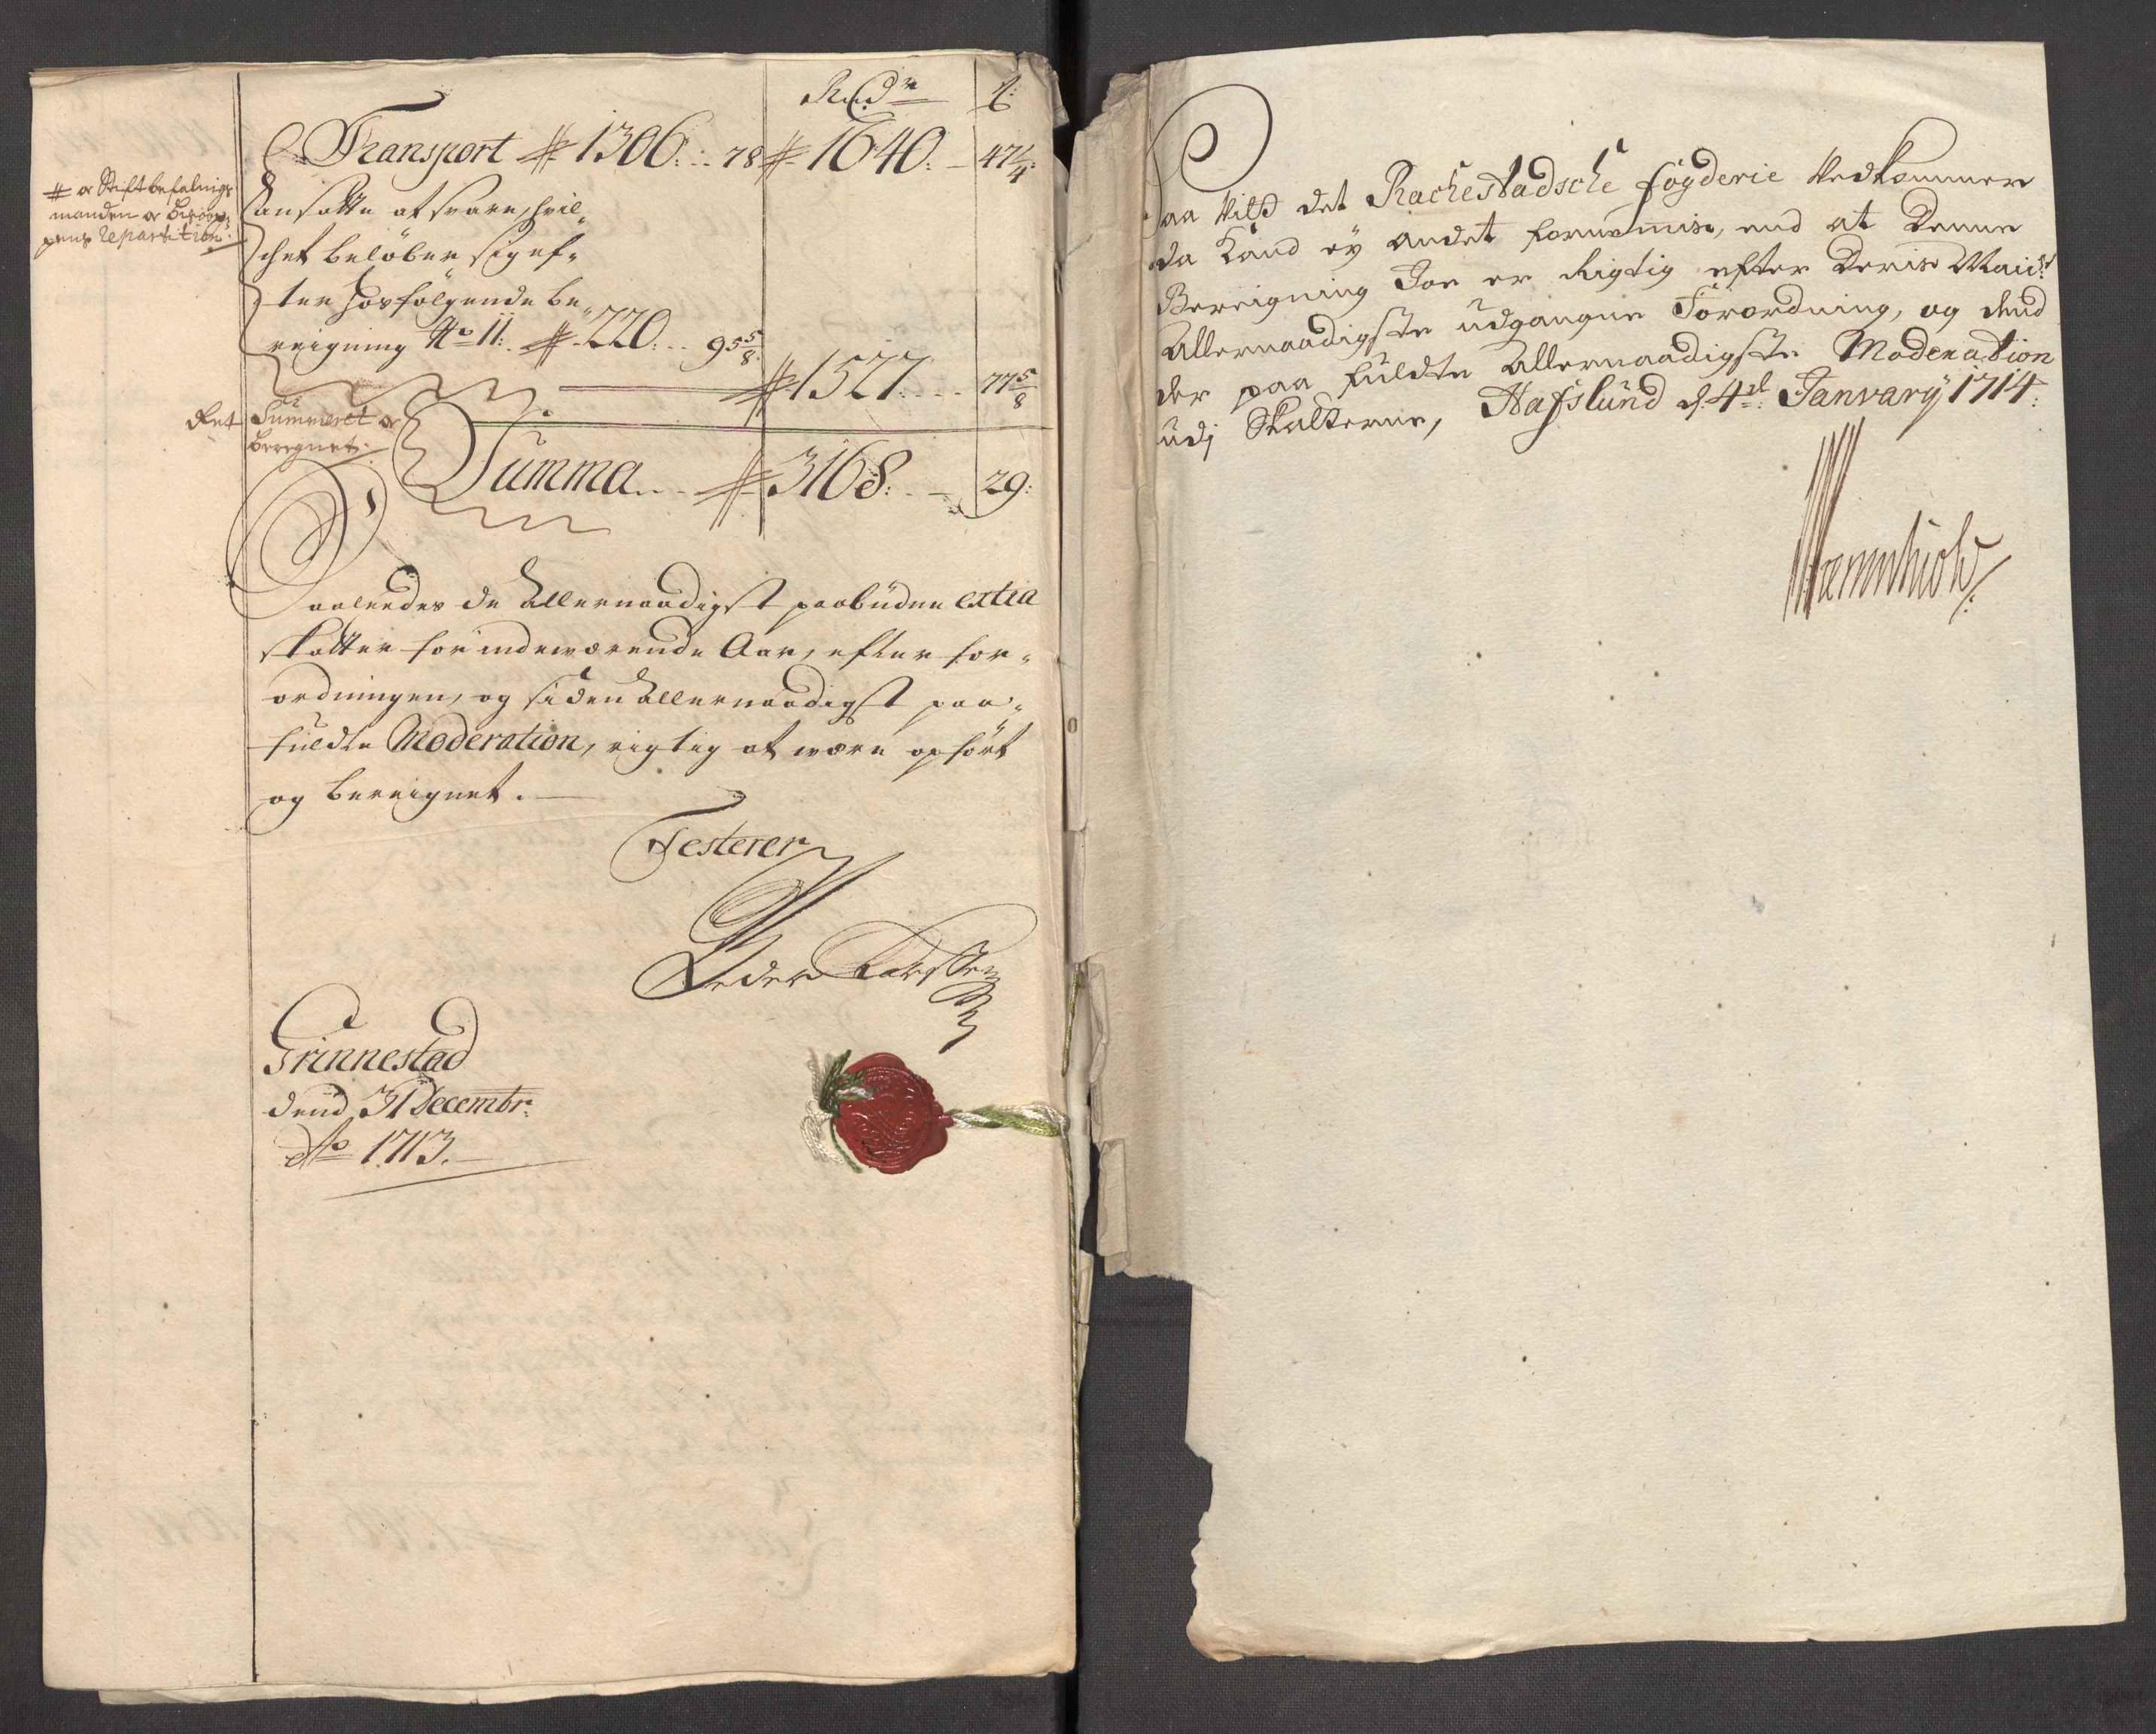 Rixdr ß:
Transport # 1306: .. 78 # 1640: – 47 1/4:
# or Stiftbefalnigs
manden or Bispop:
pens repartition:
ansatte at svare, hvil„
chet beløber sig ef„
ter hosfølgende be„
reigning No 11: # 220: .. 95 5/8:
# 1527: .... 77 5/8
Ret Summeret or
beregnet:
Summa .. # 3168: .. – 29:
Saaleedes de allernaadigst paabüdne extra
skatter for indeværende Aar, efter for„
ordningen, og siden allernaadigst paa„
fuldte Moderation, rigtig at være opført
og bereignet. –
Testerer
Peder Larssen
Grinnestad
dend 31 Decembr:
Ao 1713. –
Saa vit det Rachestadsche fögderie Vedkommer
da Kand ey andet fornemmis, end at denne
Bereigning Joe er Rigtig efter Deris Maij:st
Allernaadigste udgangne Forordning, og dend
der paa fuldte Allernaadigste Moderation
udj Skatterne, Hafslund d. 4de: January 1714: